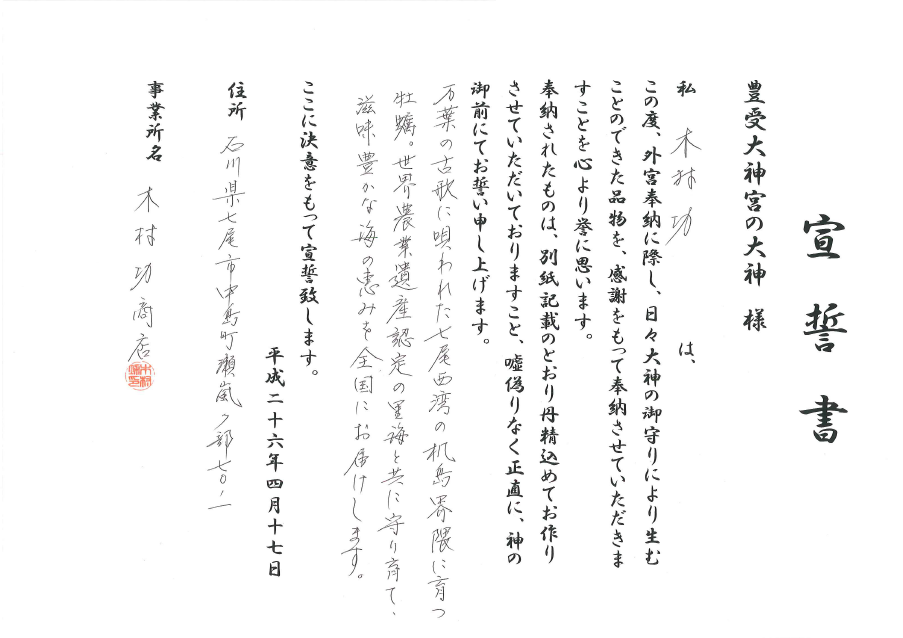 宣誓書
豊受大神宮の大神 様
私 木村功 は、
この度、外宮奉納に際し、日々大神の御守りにより生む
ことのできた品物を、感謝をもって奉納させていただきま
すことを心より誉に思います。
奉納されたものは、別紙記載のとおり丹精込めてお作り
させていただいておりますこと、嘘偽りなく正直に、神の
御前にてお誓い申し上げます。
万葉の古歌に唄われた七尾西湾の机島界隈に育つ
牡蠣。世界農業遺産認定の里海と共に守り育て、
滋味豊かな海の恵みを全国にお届けします。
ここに決意をもって宣誓致します。
平成二十六年四月十七日
住所 石川県七尾市中島町瀬嵐ク部七〇ノ一
事業所名 木村功商店